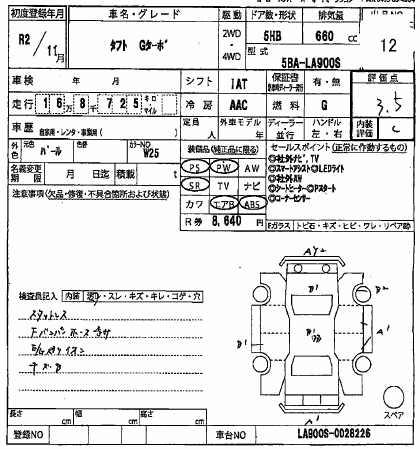 初度登録年月
車名・グレード
駆動
ドア数・形状
排気量
R2/11月
タフト Gターボ
2WD
・
4WD
5HB
660 cc
12
型式
5BA-LA900S
車検 年 月
シフト
IAT
保証書
有・無
評価点
3.5
走行
16万8千725
キロ
マイル
冷房
AAC
燃料
G
車歴
自家用・レンタ・事業用( )
定員
人
外車モデル
年
ディーラー
並行
ハンドル
左・右
内装
評価
C
外色
元色
パール
色替
カラーNO
W25
装備品(純正品に限る)
セールスポイント(正常に作動するもの)
PS PW AW
SR TV ナビ
カワ エアB ABS
R券 8,640 円
◎社外ナビ,TV
◎スマートアシスト◎LEDライト
◎社外AW
◎シートヒーター◎Pスタート
◎コーナーセンサー
名義変更
期限
月 日迄
積載 t
注意事項(欠品・修復・不具合箇所および状態)
Fガラス
トビ石・キズ・ヒビ・ワレ・リペア跡
検査員記入
内装
・スレ・キズ・キレ・コゲ・穴
スタットレス
キズB
AY2
B1
B2
B1
A1
B1
A1
スペア
長さ cm
幅 cm
高さ cm
登録NO
車台NO
LA900S-0028226